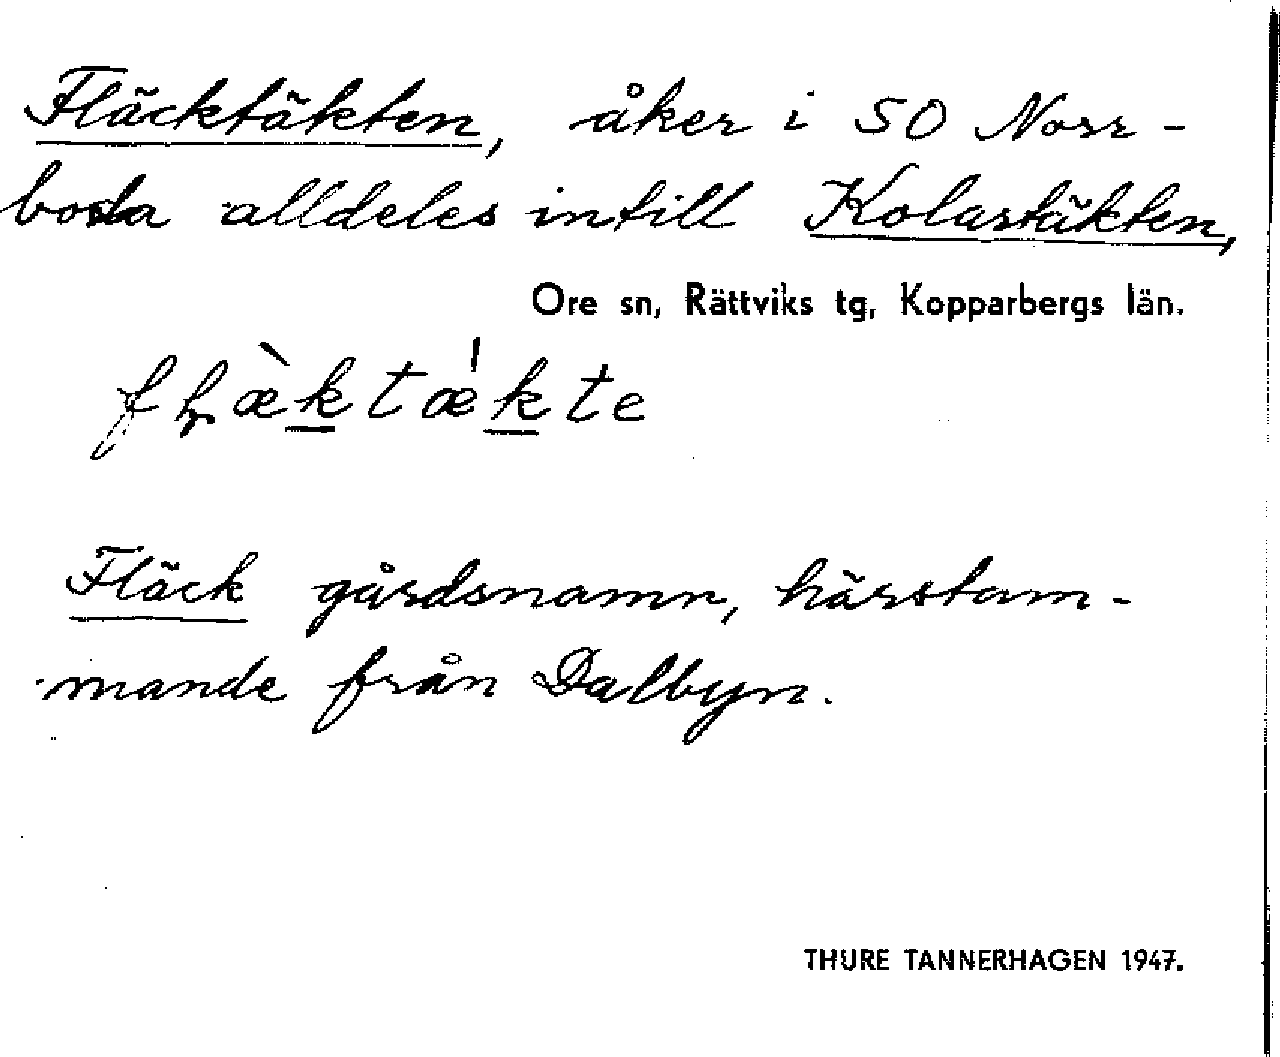 Fläcktäkten, åker i SO Norr-
boda alldeles intill Kolartäkten,
Ore sn, Rättviks tg, Kopparbergs län.
Fläck gårdsnamn, härstam-
mande från Dalbyn.
THURE TANNERHAGEN 1947.